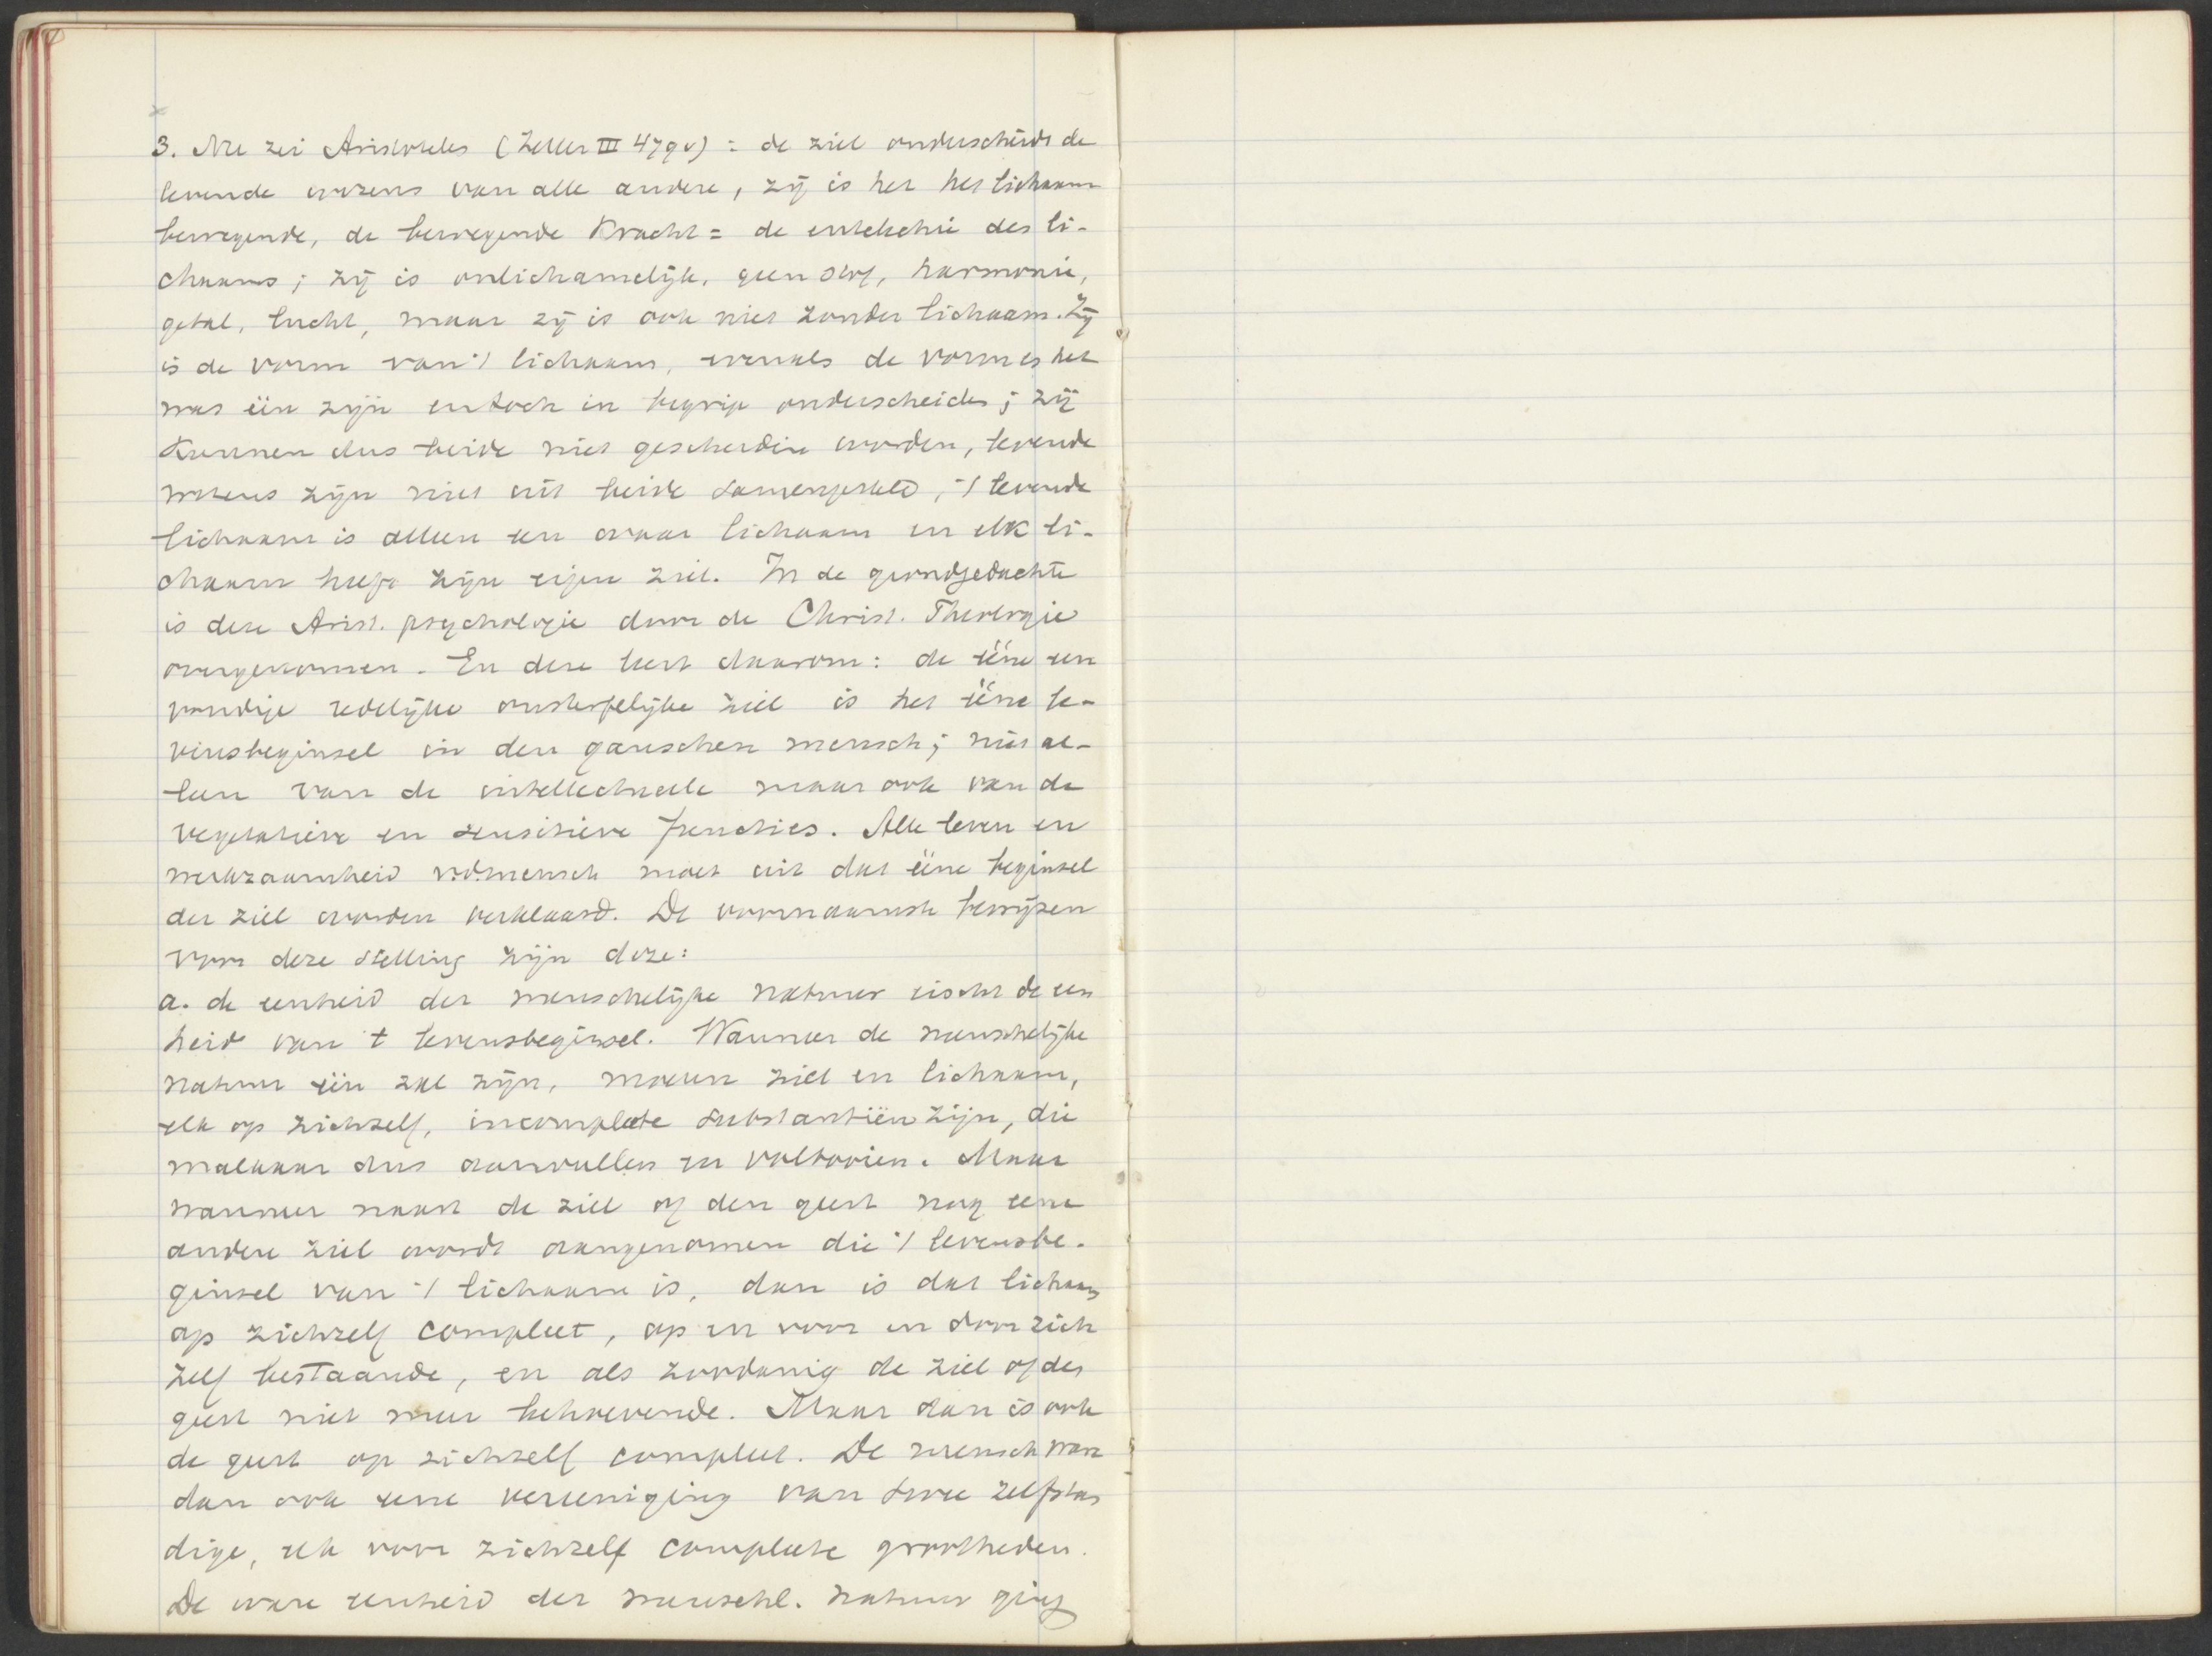 3. Nu zei Aristoteles (Zeller III 479v) = de ziel onderscheidt de
levende wezens van alle andere, zij is het het lichaam
bewegende, de bewegende kracht = de entelechie des li-
chaams; zij is onlichamelijk, geen stof, harmonie,
getal, lucht, maar zij is ook niet zonder lichaam. Zij
is de vorm van 't lichaam, evenals de vorm en het
was één zijn en toch in begrip onderscheiden; zij
kunnen dus beide niet gescheiden worden, levende
wezens zijn niet uit beide samengesteld, 't levende
lichaam is alleen een waar lichaam en elk li-
chaam heeft zijn eigen ziel. In de grondgedachte
is deze Arist. psychologie door de Christ. Theologie
overgenomen. En deze leert daarom: de ééne een
voudige redelijke onsterfelijke ziel is het ééne le-
vensbeginsel in den ganschen mensch; niet al-
leen van de intellectueele maar ook van de
vegetatieve en sensitieve functies. Alle leven en
werkzaamheid v.d. mensch moet uit dat ééne beginsel
der ziel worden verklaard. De voornaamste bewijzen
voor deze stelling zijn deze:
a. de eenheid der menschelijke natuur eischt de een
heid van 't levensbeginsel. Wanneer de menschelijke
natuur één zal zijn, moeten ziel en lichaam,
elk op zichzelf, incomplete substantiën zijn, die
malkaar dus aanvullen en voltooien. Maar
wanneer naast de ziel of den geest nog eene
andere ziel wordt aangenomen die 't levensbe-
ginsel van 't lichaam is, dan is dat lichaam
op zichzelf compleet, op en voor en door zich
zelf bestaande, en als zoodanig de ziel of den
geest niet meer behoevende. Maar dan is ook
de geest op zichzelf compleet. De mensch ware
dan ook eene vereeniging van twee zelfstan
dige, elk voor zichzelf complete grootheden.
De ware eenheid der menschl. natuur ging